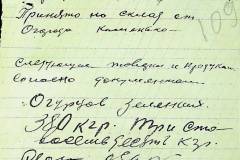 Принято на склад от
Огорода
109
Следующие товары и продукты
согласно документам
Огурцов зеленых
380 кгр. Три ста
восемьдесят кгр.